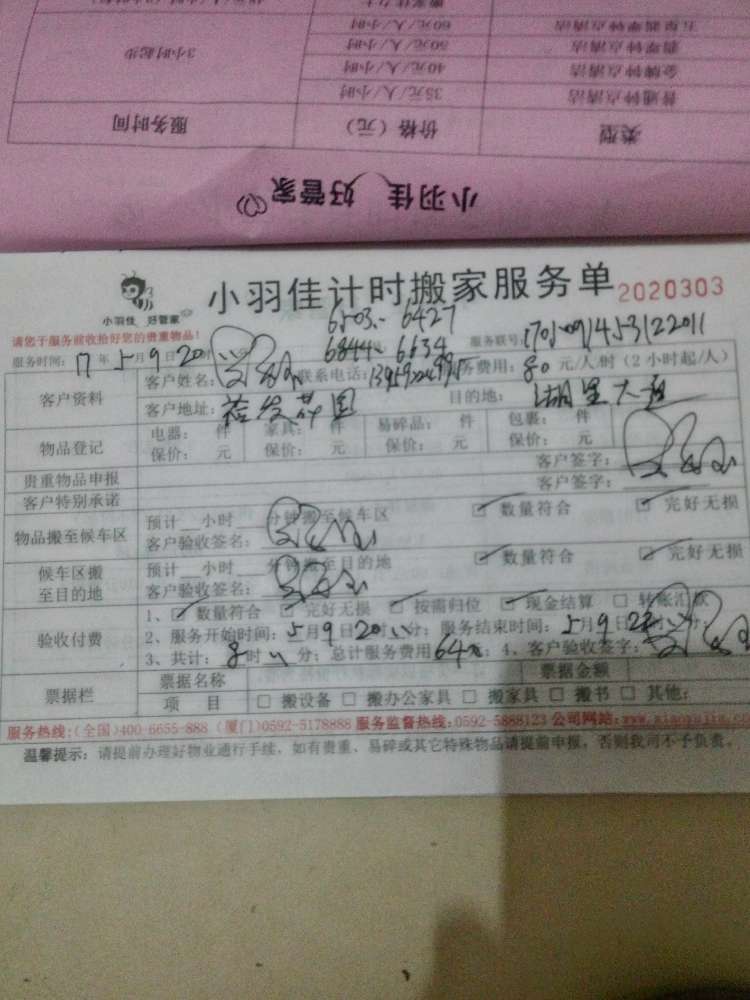 五星翡翠钟点清洁 60元/人/小时
翡翠钟点清洁 50元/人/小时 3小时起步
金牌钟点清洁 40元/人/小时
普通钟点清洁 35元/人/小时
类型 价格（元） 服务时间
小羽佳 好管家
小羽佳 好管家
小羽佳计时搬家服务单 2020303
6503 6427
请您于服务前收拾好您的贵重物品！ 6844 6634 服务联号:
服务时间: 17年5月9日20
客户资料 客户姓名: 联系电话: 服务费用: 80元/人/时（2小时起/人）
客户地址: 目的地: 湖里大道
物品登记 电器: 件 家具: 件 易碎品: 件 包裹: 件
保价: 元 保价: 元 保价: 元 保价: 元
贵重物品申报 客户签字:
客户特别承诺 客户签字:
物品搬至候车区 预计__小时__分钟搬至候车区 数量符合 完好无损
客户验收签名:
候车区搬至目的地 预计__小时__分钟搬至目的地 数量符合 完好无损
客户验收签名:
验收付费 1、数量符合 完好无损 按需归位 现金结算 转账汇款
2、服务开始时间: 5月9日 20 分; 服务结束时间: 5月9日 分;
3、共计: 8时 分; 总计服务费用 640; 4、客户验收签字:
票据栏 票据名称 票据金额
项 目 □ 搬设备 □ 搬办公家具 □ 搬家具 □ 搬书 □ 其他:
服务热线:(全国)400-6655-888 (厦门)0592-5178888 服务监督热线:0592-5888123 公司网站:
温馨提示: 请提前办理好物业通行手续，如有贵重、易碎或其它特殊物品请提前申报，否则我司不予负责。